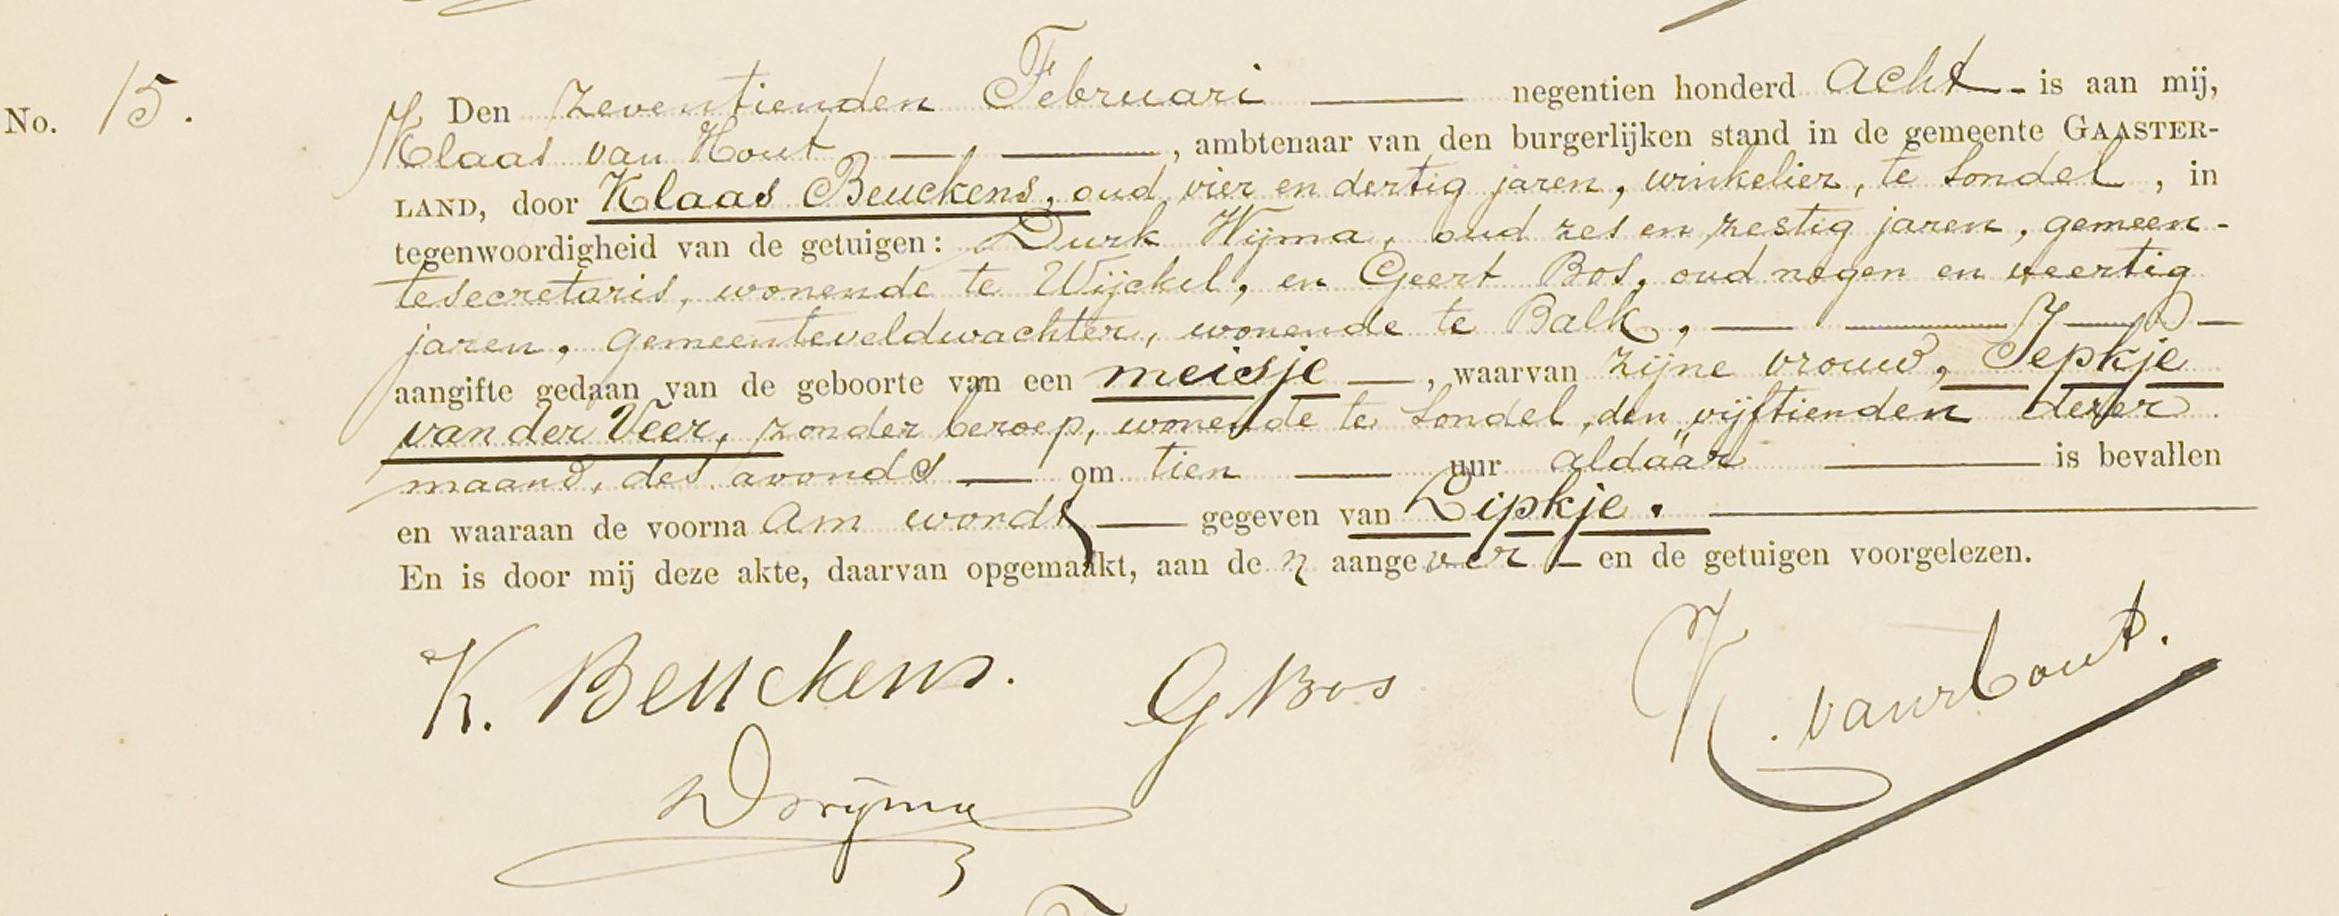 No. 15.
Den zeventienden Februari negentien honderd acht - is aan mij,
Klaas van Hout, ambtenaar van den burgerlijken stand in de gemeente GAASTER-
LAND, door Klaas Beuckens, oud vier en dertig jaren, winkelier, te Sondel, in
tegenwoordigheid van de getuigen: Durk Wijma, oud zes en zestig jaren, gemeen-
tesecretaris, wonende te Wijckel, en Geert Bos, oud negen en veertig
jaren, gemeenteveldwachter, wonende te Balk,
aangifte gedaan van de geboorte van een meisje, waarvan zijne vrouw, Jepkje
van der Veer, zonder beroep, wonende te Sondel, den vijftienden dezer
maand, des avonds om tien uur aldaar is bevallen
en waaraan de voornaam wordt gegeven van Zipkje.
En is door mij deze akte, daarvan opgemaakt, aan den aangever en de getuigen voorgelezen.
K. Beuckens. G Bos K. van Hout.
D Wijma